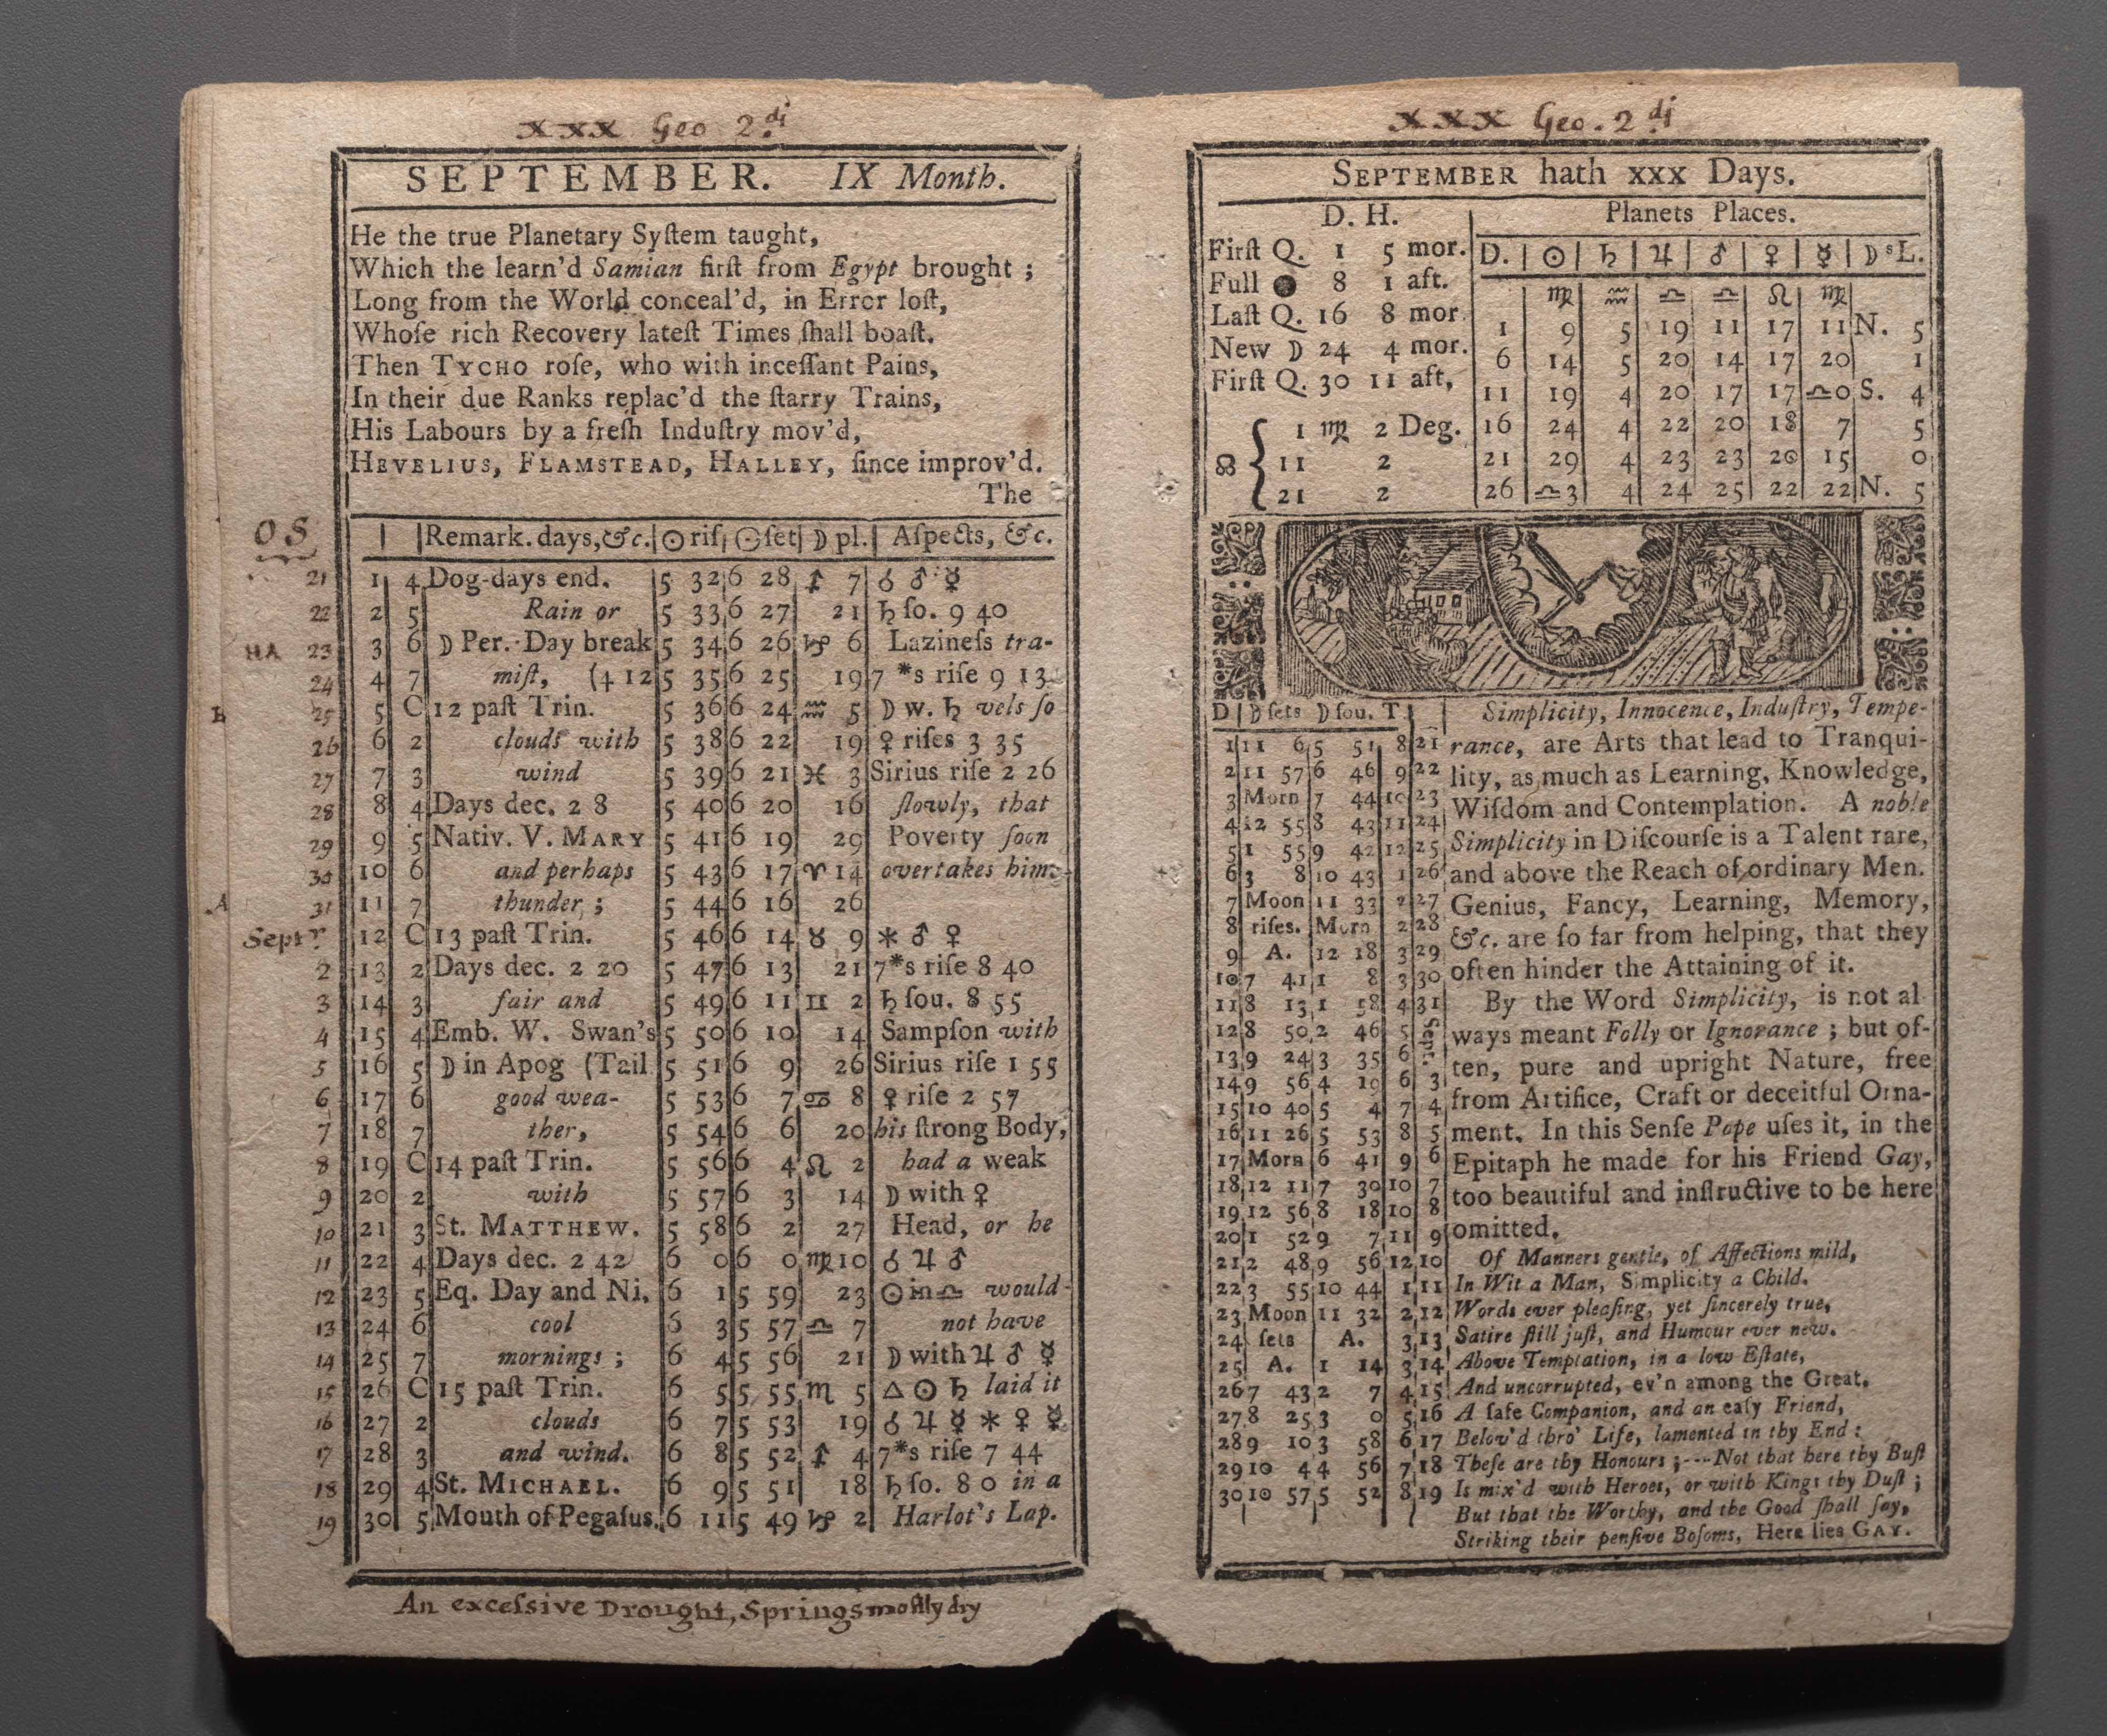 xxx Geo 2.di
SEPTEMBER. IX Month.
He the true Planetary Syſtem taught,
Which the learn'd Samian firſt from Egypt brought ;
Long from the World conceal'd, in Error loſt,
Whoſe rich Recovery lateſt Times ſhall boaſt.
Then TYCHO roſe, who with inceſſant Pains,
In their due Ranks replac'd the ſtarry Trains,
His Labours by a freſh Induſtry mov'd,
HEVELIUS, FLAMSTEAD, HALLEY, ſince improv'd.
The
OS
Remark. days, &c. ☉ riſ ☉ ſet ☽ pl. Aſpects, &c.
21 1 4 Dog-days end. 5 32 6 28 ♐ 7 ☌ ♂ ☿
22 2 5 Rain or 5 33 6 27 21 ♄ ſo. 9 40
HA 23 3 6 ☽ Per. Day break 5 34 6 26 ♑ 6 Lazineſs tra-
24 4 7 miſt, (4 12 5 35 6 25 19 7 *s riſe 9 13
25 5 C 12 paſt Trin. 5 36 6 24 ♒ 5 ☽ w. ♄ vels ſo
26 6 2 clouds with 5 38 6 22 19 ♀ riſes 3 35
27 7 3 wind 5 39 6 21 ♓ 3 Sirius riſe 2 26
28 8 4 Days dec. 2 8 5 40 6 20 16 ſlowly, that
29 9 5 Nativ. V. MARY 5 41 6 19 29 Poverty ſoon
30 10 6 and perhaps 5 43 6 17 ♈ 14 overtakes him.
A 31 11 7 thunder ; 5 44 6 16 26
Septr. 12 C 13 paſt Trin. 5 46 6 14 ♉ 9 * ♂ ♀
2 13 2 Days dec. 2 20 5 47 6 13 21 7*s riſe 8 40
3 14 3 fair and 5 49 6 11 ♊ 2 ♄ ſou. 8 55
4 15 4 Emb. W. Swan's 5 50 6 10 14 Sampſon with
5 16 5 ☽ in Apog (Tail 5 51 6 9 26 Sirius riſe 1 55
6 17 6 good wea- 5 53 6 7 ♋ 8 ♀ riſe 2 57
7 18 7 ther, 5 54 6 6 20 his ſtrong Body,
8 19 C 14 paſt Trin. 5 56 6 4 ♌ 2 had a weak
9 20 2 with 5 57 6 3 14 ☽ with ♀
10 21 3 St. MATTHEW. 5 58 6 2 27 Head, or he
11 22 4 Days dec. 2 42 6 0 6 0 ♍ 10 ☌ ♃ ♂
12 23 5 Eq. Day and Ni. 6 1 5 59 23 ☉ in ♎ would
13 24 6 cool 6 3 5 57 ♎ 7 not have
14 25 7 mornings ; 6 4 5 56 21 ☽ with ♃ ♂ ☿
15 26 C 15 paſt Trin. 6 5 5 55 ♏ 5 △ ☉ ♄ laid it
16 27 2 clouds 6 7 5 53 19 ☌ ♃ ☿ * ♀ ☿
17 28 3 and wind. 6 8 5 52 ♐ 4 7*s riſe 7 44
18 29 4 St. MICHAEL. 6 9 5 51 18 ♄ ſo. 8 0 in a
19 30 5 Mouth of Pegaſus. 6 11 5 49 ♑ 2 Harlot's Lap.
An exceſsive Drought, Springs moſtly dry
xxx Geo. 2.di
SEPTEMBER hath xxx Days.
D. H.
Firſt Q. 1 5 mor.
Full ● 8 1 aft.
Laſt Q. 16 8 mor.
New ☽ 24 4 mor.
Firſt Q. 30 11 aft,
☊ { 1 ♍ 2 Deg.
11 2
21 2
Planets Places.
D. ☉ ♄ ♃ ♂ ♀ ☿ ☽s L.
♍ ♒ ♎ ♎ ♌ ♍
1 9 5 19 11 17 11 N. 5
6 14 5 20 14 17 20 1
11 19 4 20 17 17 ♎0 S. 4
16 24 4 22 20 18 7 5
21 29 4 23 23 20 15 0
26 ♎3 4 24 25 22 22 N. 5
D ☽ ſets ☽ ſou. T.
1 11 6 5 51 8 21
2 11 57 6 46 9 22
3 Morn 7 44 10 23
4 12 55 8 43 11 24
5 1 55 9 42 12 25
6 3 8 10 43 1 26
7 Moon 11 33 2 27
8 riſes. Morn 2 28
9 A. 12 18 3 29
10 7 41 1 8 3 30
11 8 13 1 58 4 31
12 8 50 2 46 5 Sept.
13 9 24 3 35 6
14 9 56 4 19 6 3
15 10 40 5 4 7 4
16 11 26 5 53 8 5
17 Morn 6 41 9 6
18 12 11 7 30 10 7
19 12 56 8 18 10 8
20 1 52 9 7 11 9
21 2 48 9 56 12 10
22 3 55 10 44 1 11
23 Moon 11 32 2 12
24 ſets A. 3 13
25 A. 1 14 3 14
26 7 43 2 7 4 15
27 8 25 3 0 5 16
28 9 10 3 58 6 17
29 10 4 4 56 7 18
30 10 57 5 52 8 19
Simplicity, Innocence, Induſtry, Tempe-
rance, are Arts that lead to Tranqui-
lity, as much as Learning, Knowledge,
Wiſdom and Contemplation. A noble
Simplicity in Diſcourſe is a Talent rare,
and above the Reach of ordinary Men.
Genius, Fancy, Learning, Memory,
&c. are ſo far from helping, that they
often hinder the Attaining of it.
By the Word Simplicity, is not al
ways meant Folly or Ignorance ; but of-
ten, pure and upright Nature, free
from Artifice, Craft or deceitful Orna-
ment. In this Senſe Pope uſes it, in the
Epitaph he made for his Friend Gay,
too beautiful and inſtructive to be here
omitted.
Of Manners gentle, of Affections mild,
In Wit a Man, Simplicity a Child.
Words ever pleaſing, yet ſincerely true,
Satire ſtill juſt, and Humour ever new.
Above Temptation, in a low Eſtate,
And uncorrupted, ev'n among the Great.
A ſafe Companion, and an eaſy Friend,
Belov'd thro' Life, lamented in thy End :
Theſe are thy Honours ;---Not that here thy Buſt
Is mix'd with Heroes, or with Kings thy Duſt ;
But that the Worthy, and the Good ſhall ſay,
Striking their penſive Boſoms, Here lies GAY.